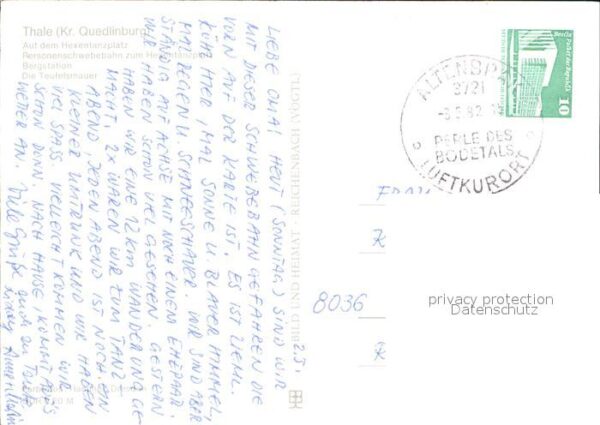 Thale (Kr. Quedlinburg)
Auf dem Hexentanzplatz
Personenschwebebahn zum Hexentanzplatz
Bergstation
Die Teufelsmauer
BILD UND HEIMAT · REICHENBACH
LIEBE OMA! HEUT (SONNTAG) SIND WIR
MIT DIESER SCHWEBEBAHN GEFAHREN DIE
VORN AUF DER KARTE IST. ES IST ZIEML.
KÜHL HIER, MAL SONNE U. BLAUER HIMMEL,
MAL REGEN U. SCHNEESCHAUER. WIR SIND ABER
STÄNDIG AUF ACHSE MIT NOCH EINEM EHEPAAR.
WIR HABEN SCHON VIEL GESEHEN. GESTERN
HABEN WIR EINE 12 KM WANDERUNG GE-
MACHT. 2X WAREN WIR ZUM TANZ
ABEND. JEDEN ABEND IST NOCH EIN
KLEINER UMTRUNK UND WIR HABEN
VIEL SPASS. VIELLEICHT KOMMEN WIR
SCHON DONN. NACH HAUSE, KOMMT
WETTER AN. Viele Grüße auch an
ALTENBRAK
3721
PERLE DES
BODETALS
LUFTKURORT
10
8036
privacy protection
Datenschutz